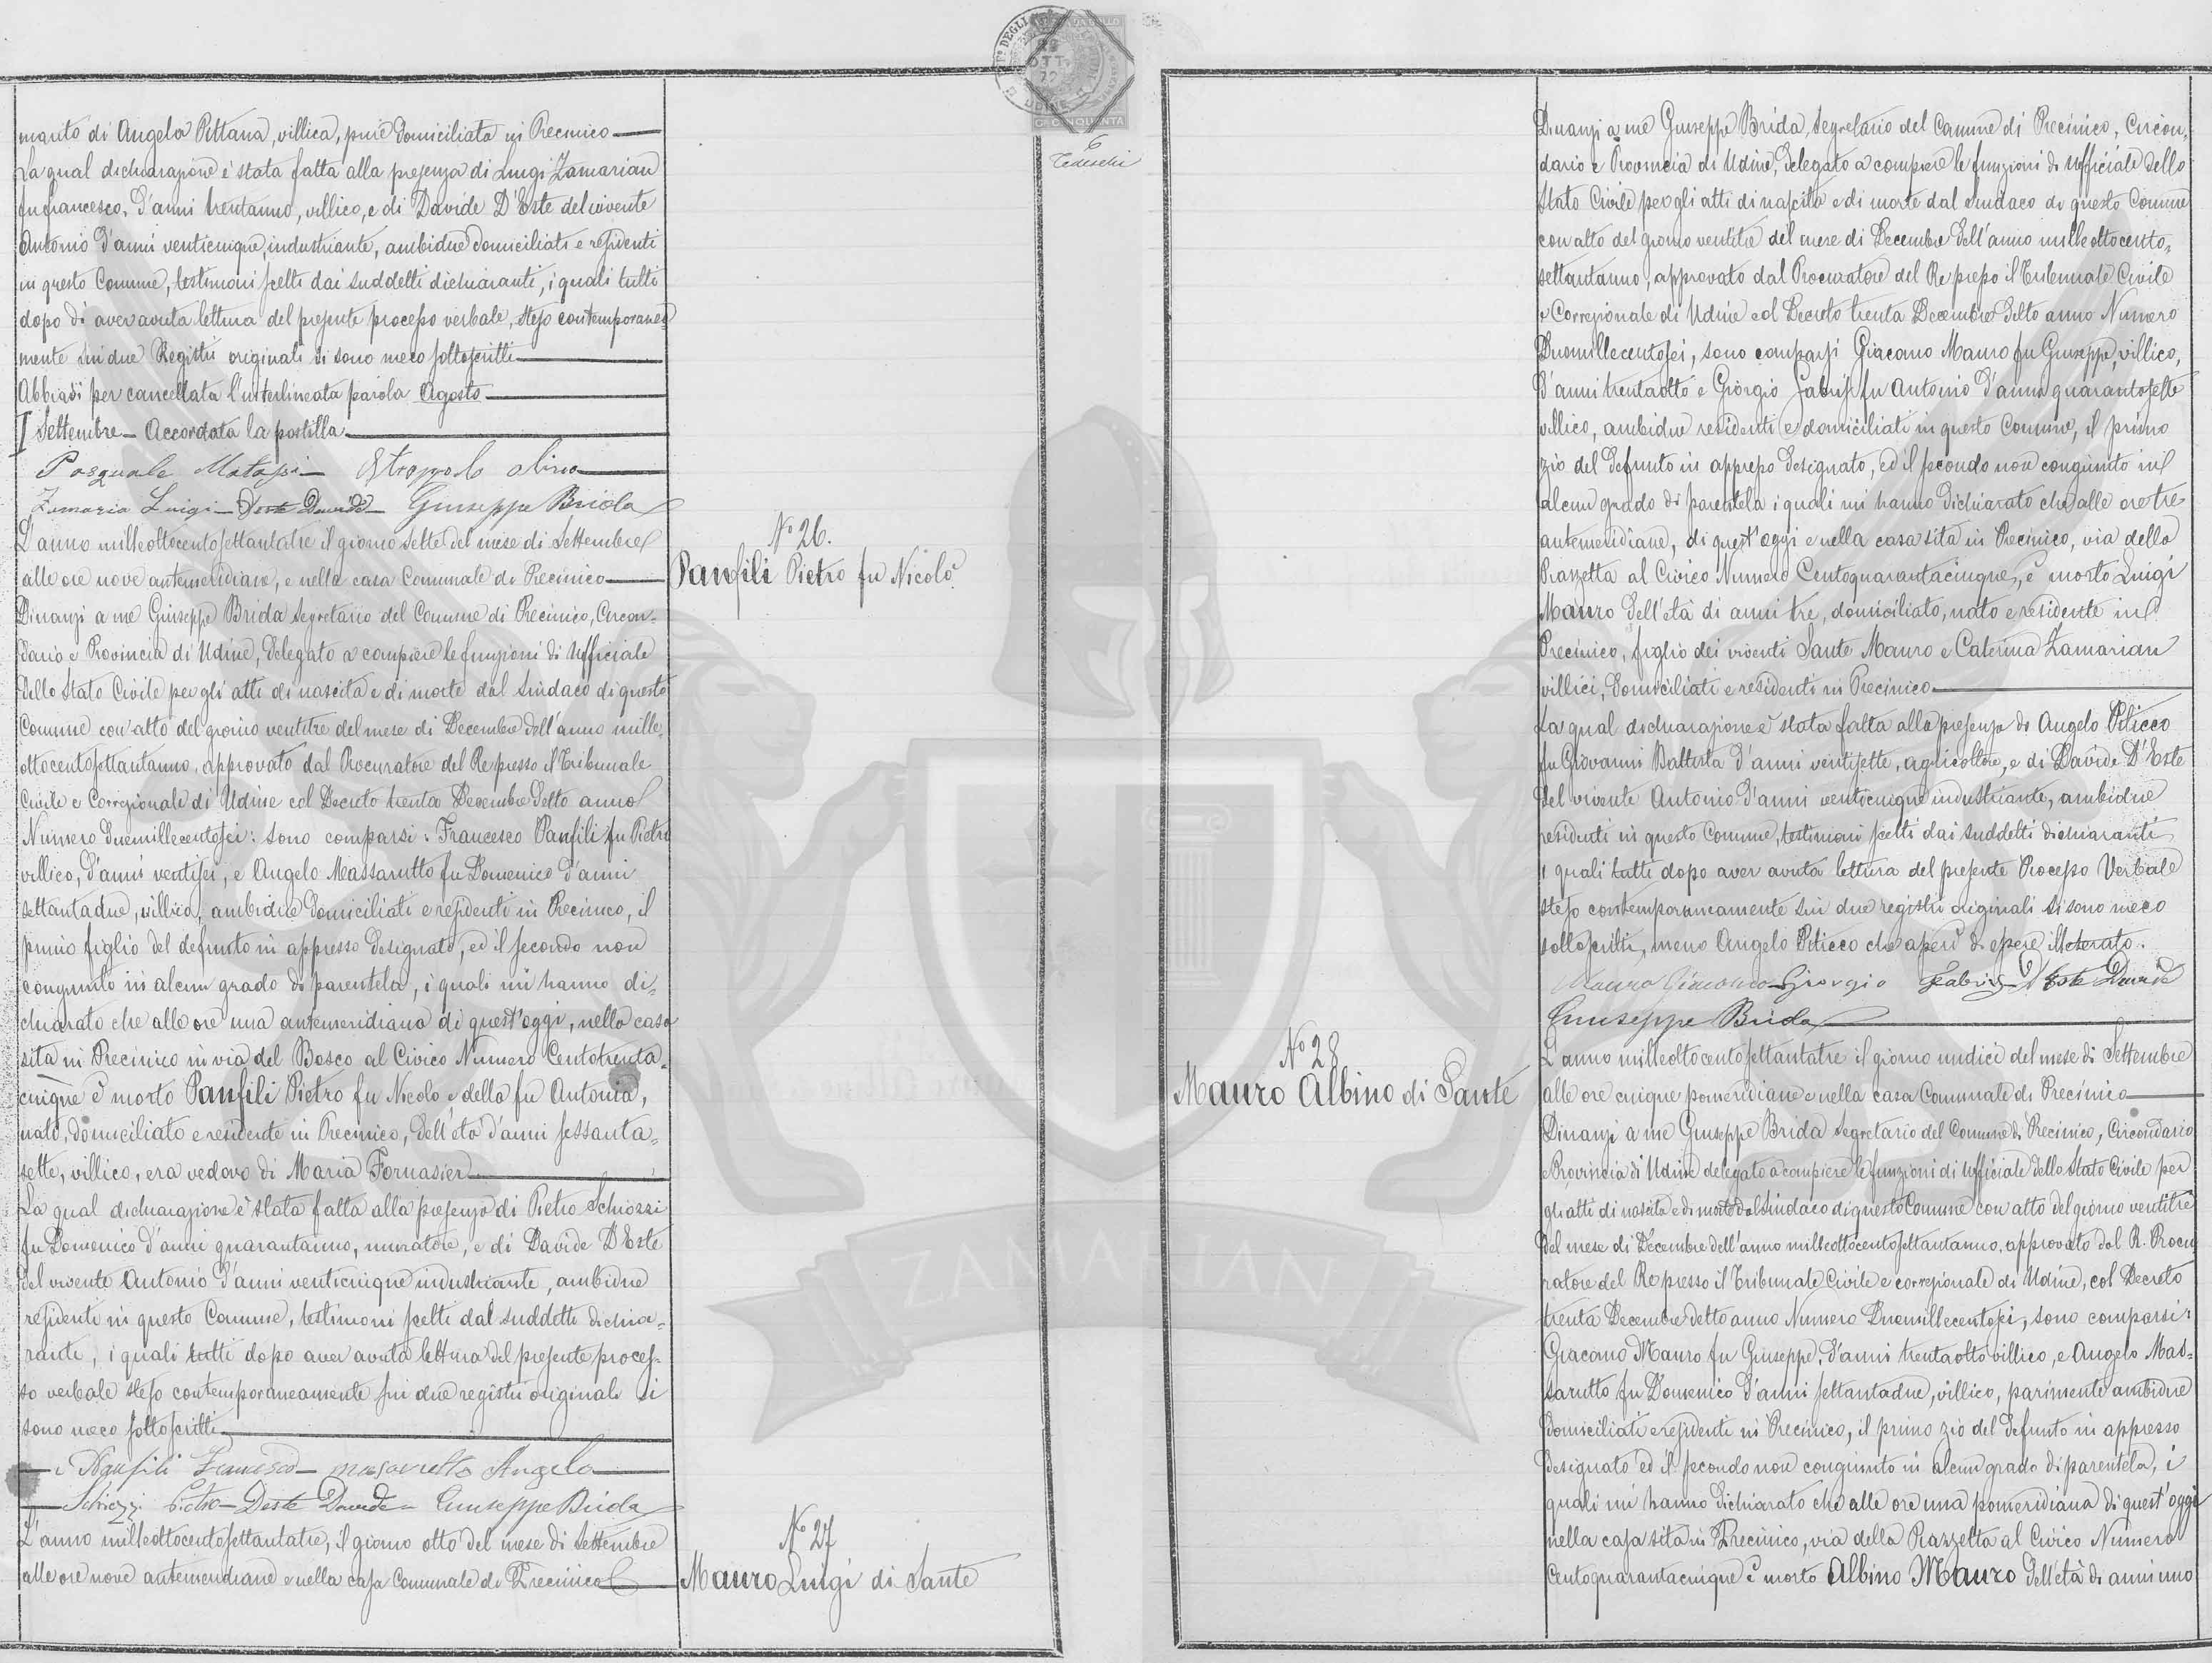 marito di Angela Pittana, villica, pure domiciliata in Precinico
La qual dichiarazione è stata fatta alla presenza di Luigi Zamarian
fu Francesco, d'anni trentanno, villico, e di Davide D'Este del vivente
Antonio d'anni venticinque, industriante, ambidue domiciliati e residenti
in questo Comune, testimoni scelti dai suddetti dichiaranti, i quali tutti
dopo di aver avuta lettura del presente processo verbale, steso contemporanea
mente sui due Registri originali si sono meco sottoscritti
Abbiasi per cancellata l'interlineata parola Agosto
I Settembre - Accordata la postilla
Pasquale
Zamaria Luigi - Deste Davide - Giuseppe Brida
L'anno milleottocentosettantatre il giorno sette del mese di Settembre
alle ore nove antemeridiane, e nella casa Comunale di Precinico
Dinanzi a me Giuseppe Brida Segretario del Comune di Precinico, Circon-
dario e Provincia di Udine, delegato a compiere le funzioni di Ufficiale
dello Stato Civile per gli atti di nascita e di morte dal Sindaco di questo
Comune con atto del giorno ventitre del mese di Decembre dell'anno mille
ottocentosettantanno, approvato dal Procuratore del Re presso il Tribunale
Civile e Correzionale di Udine col Decreto trenta Decembre detto anno
Numero duemillecentosei: sono comparsi: Francesco Panfili fu Pietro
villico, d'anni ventisei, e Angelo Massarutto fu Domenico d'anni
settantadue, villico, ambidue domiciliati e residenti in Precinico, il
primo figlio del defunto in appresso designato, ed il secondo non
congiunto in alcun grado di parentela, i quali mi hanno di=
chiarato che alle ore una antemeridiana di quest'oggi, nella casa
sita in Precinico in via del Bosco al Civico Numero Centotrenta=
cinque è morto Panfili Pietro fu Nicolo e della fu Antonia,
nato, domiciliato e residente in Precinico, dell'età d'anni sessanta=
sette, villico, era vedovo di Maria Fornasier
La qual dichiarazione è stata fatta alla presenza di Pietro Schiozzi
fu Domenico d'anni quarantanno, muratore, e di Davide D'Este
del vivente Antonio d'anni venticinque industriante, ambidue
residenti in questo Comune, testimoni scelti dal suddetti dichia=
ranti, i quali tutti dopo aver avuta lettura del presente proces=
so verbale steso contemporaneamente sui due registri originali si
sono meco sottoscritti
Panfili Francesco - masarutto Angelo
Schiozzi Pietro - Deste Davide - Giuseppe Brida
L'anno milleottocentosettantatre, il giorno otto del mese di Settembre
alle ore nove antemeridiane e nella casa Comunale di Precinico
No 26.
Panfili Pietro fu Nicolo
No 27
Mauro Luigi di Sante
UDINE
Ct CINQUANTA
6
Tedeschi
No 28
Mauro Albino di Sante
Dinanzi a me Giuseppe Brida, Segretario del Comune di Precinico, Circon=
dario e Provincia di Udine, delegato a compiere le funzioni di Ufficiale dello
Stato Civile per gli atti di nascita e di morte dal Sindaco di questo Comune
con atto del giorno ventitre del mese di Decembre dell'anno milleottocento=
settantanno, approvato dal Procuratore del Re presso il Tribunale Civile
e Correzionale di Udine col Decreto trenta Decembre detto anno Numero
Duemillecentosei, sono comparsi Giacomo Mauro fu Giuseppe, villico,
d'anni trentaotto e Giorgio Fabris fu Antonio d'anni quarantasette
villico, ambidue residenti e domiciliati in questo Comune, il primo
zio del defunto in appresso designato, ed il secondo non congiunto in
alcun grado di parentela i quali mi hanno dichiarato che alle ore tre
antemeridiane, di quest'oggi e nella casa sita in Precinico, via della
Piazzetta al Civico Numero Centoquarantacinque, è morto Luigi
Mauro dell'età di anni tre, domiciliato, nato e residente in
Precinico, figlio dei viventi Sante Mauro e Caterina Zamarian
villici, domiciliati e residenti in Precinico
La qual dichiarazione è stata fatta alla presenza di Angelo Piticco
fu Giovanni Battista d'anni ventisette, agricoltore, e di Davide D'Este
del vivente Antonio d'anni venticinque industriante, ambidue
residenti in questo Comune, testimoni scelti dai suddetti dichiaranti
i quali tutti dopo aver avuta lettura del presente Processo Verbale
steso contemporaneamente sui due registri originali si sono meco
sottoscritti, meno Angelo Piticco che asperì di essere illeterato.
Mauro Giacomo - Giorgio Fabris - D'este Davide
Giuseppe Brida
L'anno milleottocentosettantatre il giorno undici del mese di Settembre
alle ore cinque pomeridiane e nella casa Comunale di Precinico
Dinanzi a me Giuseppe Brida Segretario del Comune di Precinico, Circondario
e Provincia di Udine delegato a compiere le funzioni di Ufficiale dello Stato Civile per
gli atti di nascita e di morte dal Sindaco di questo Comune con atto del giorno ventitre
del mese di Decembre dell'anno milleottocentosettantanno, approvato dal R. Procu
ratore del Re presso il Tribunale Civile e correzionale di Udine, col Decreto
trenta Decembre detto anno Numero Duemillecentosei, sono comparsi:
Giacomo Mauro fu Giuseppe, d'anni trentaotto villico, e Angelo Mas=
sarutto fu Domenico d'anni settantadue, villico, parimente ambidue
domiciliati e residenti in Precinico, il primo zio del defunto in appresso
designato ed il secondo non congiunto in alcun grado di parentela, i
quali mi hanno dichiarato che alle ore una pomeridiana di quest'oggi
nella casa sita in Precinico, via della Piazzetta al Civico Numero
Centoquarantacinque è morto Albino Mauro dell'età di anni uno
ZAMARIAN